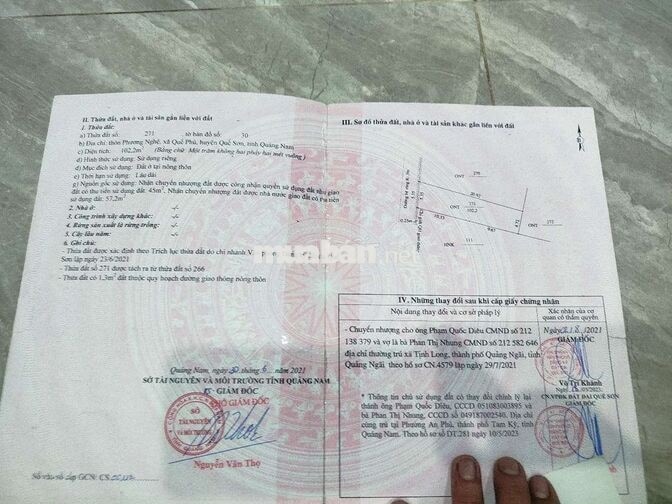 II. Thửa đất, nhà ở và tài sản gắn liền với đất
1. Thửa đất:
a) Thửa đất số: 271 tờ bản đồ số: 30
b) Địa chỉ: thôn Phương Nghệ, xã Quế Phú, huyện Quế Sơn, tỉnh Quảng Nam
c) Diện tích: 102,2m² (Bằng chữ: Một trăm không hai phẩy hai mét vuông)
d) Hình thức sử dụng: Sử dụng riêng
đ) Mục đích sử dụng: Đất ở tại nông thôn
e) Thời hạn sử dụng: Lâu dài
g) Nguồn gốc sử dụng: Nhận chuyển nhượng đất được công nhận quyền sử dụng đất như giao
đất có thu tiền sử dụng đất: 45m². Nhận chuyển nhượng đất được nhà nước giao đất có thu tiền
sử dụng đất: 57,2m²
2. Nhà ở: -/-
3. Công trình xây dựng khác: -/-
4. Rừng sản xuất là rừng trồng: -/-
5. Cây lâu năm: -/-
6. Ghi chú:
- Thửa đất được xác định theo Trích lục thửa đất do chi nhánh V
Sơn lập ngày 23/6/2021
- Thửa đất số 271 được tách ra từ thửa đất số 266
- Thửa đất có 1,3m² đất thuộc quy hoạch đường giao thông nông thôn
muaban.net
Quảng Nam, ngày 30 tháng 6 2021
SỞ TÀI NGUYÊN VÀ MÔI TRƯỜNG TỈNH QUẢNG NAM
GIÁM ĐỐC
SỞ
TÀI NGUYÊN
VÀ MÔI TRƯỜNG
Nguyễn Văn Thọ
Số vào sổ cấp GCN: CS
III. Sơ đồ thửa đất, nhà ở và tài sản khác gắn liền với đất
ONT 270
ONT 271
102,2
20.92
5.35
0.25m
10.33
9.87
4.72
ONT 272
HNK 111
IV. Những thay đổi sau khi cấp giấy chứng nhận
Nội dung thay đổi và cơ sở pháp lý
Xác nhận của cơ quan có thẩm quyền
- Chuyển nhượng cho ông Phạm Quốc Diêu CMND số 212
138 379 và vợ là bà Phan Thị Nhung CMND số 212 582 646
địa chỉ thường trú xã Tịnh Long, thành phố Quảng Ngãi, tỉnh
Quảng Ngãi theo hồ sơ CN.4579 lập ngày 29/7/2021
Ngày 2/8/2021
GIÁM ĐỐC
Võ Trí Khánh
* Thông tin chủ sử dụng đất có thay đổi chỉnh lý lại
thành ông Phạm Quốc Diêu, CCCD: 051083003895 và
bà Phan Thị Nhung, CCCD số 049187002540. Địa chỉ
cùng trú tại Phường An Phú, thành phố Tam Kỳ, tỉnh
Quảng Nam. Theo hồ sơ số DT.281 lập ngày 10/5/2023.
/05/2023
CN.VPĐK ĐẤT ĐAI QUẾ SƠN
GIÁM ĐỐC